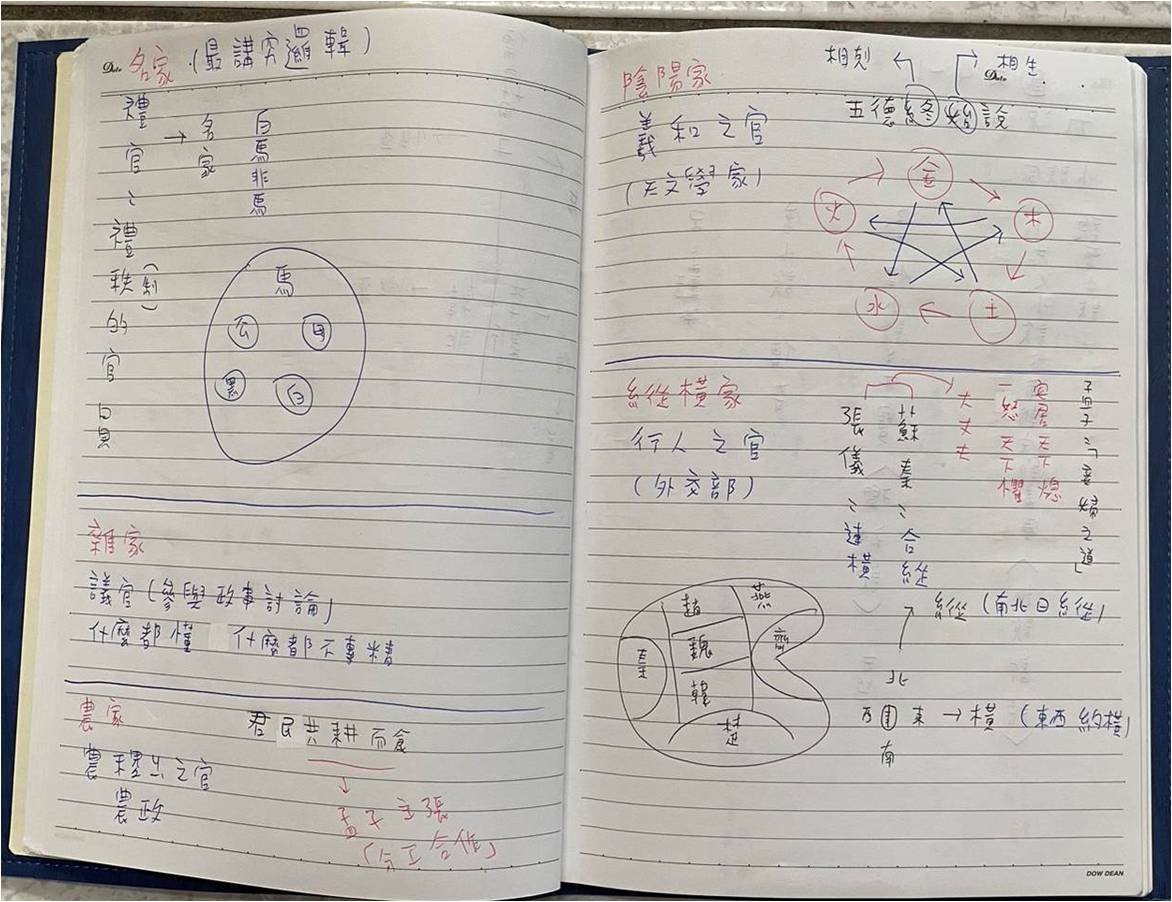 名家 (最講究邏輯)
禮官:禮秩(制)的官員
→ 名家
白馬非馬
馬
黑
白
雜家
議官(參與政事討論)
什麼都懂 什麼都不專精
農家
君民共耕而食
農稷之官
農政
↓
孟子主張
(分工合作)
陰陽家
相剋 相生
五德終始說
羲和之官
(天文學家)
金
火 木
水 土
縱橫家
行人之官
(外交部)
孟子:「妾婦之道」
安居天下熄
一怒天下懼
大丈夫
蘇秦:合縱
張儀:連橫
趙 燕
秦 魏 齊
韓
楚
縱 (南北曰縱)
北
西 東 → 橫 (東西為橫)
南
DOW DEAN